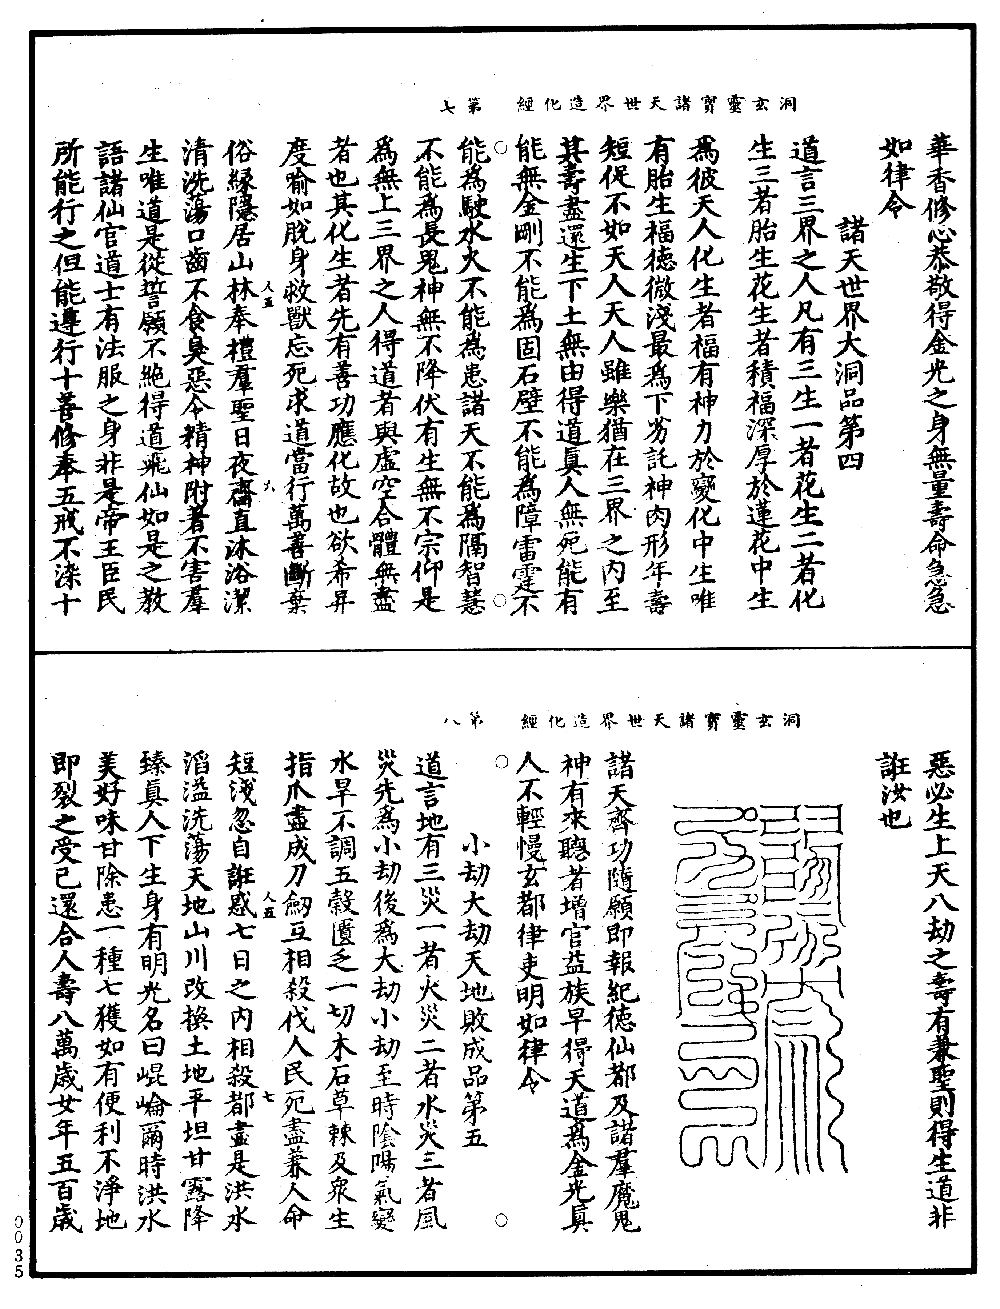 洞玄靈寶諸天世界造化經　第七
華香修心恭敬得金光之身無量壽命急急
如律令
諸天世界大洞品第四
道言三界之人凡有三生一者花生二者化
生三者胎生花生者積福深厚於蓮花中生
為彼天人化生者福有神力於變化中生唯
有胎生福德微淺最為下劣託神肉形年壽
短促不如天人天人雖樂猶在三界之內至
其壽盡還生下土無由得道真人無死能有
能無金剛不能為固石壁不能為障雷霆不
能為駛水火不能為患諸天不能為隔智慧
不能為長鬼神無不降伏有生無不宗仰是
為無上三界之人得道者與虛空合體無盡
者也其化生者先有善功應化故也欲希昇
度喻如脫身救獸忘死求道當行萬善斷棄
俗緣隱居山林奉禮羣聖日夜齋直沐浴潔
清洗蕩口齒不食臭惡令精神附著不害羣
生唯道是從誓願不絕得道飛仙如是之教
語諸仙官道士有法服之身非是帝王臣民
所能行之但能遵行十善修奉五戒不染十
人五
六
洞玄靈寶諸天世界造化經　第八
惡必生上天八劫之壽有兼聖則得生道非
誑汝也
諸天齊功隨願即報紀德仙都及諸羣魔鬼
神有來聽者增官益族早得天道為金光真
人不輕慢玄都律吏明如律令
小劫大劫天地敗成品第五
道言地有三災一者火災二者水災三者風
災先為小劫後為大劫小劫至時陰陽氣變
水旱不調五穀匱乏一切木石草棘及眾生
指爪盡成刀劒互相殺伐人民死盡兼人命
短淺忽自誑惑七日之內相殺都盡是洪水
滔溢洗蕩天地山川改換土地平坦甘露降
臻真人下生身有明光名曰崐崘爾時洪水
美好味甘除患一種七獲如有便利不淨地
即裂之受已還合人壽八萬歲女年五百歲
人五
七
0035